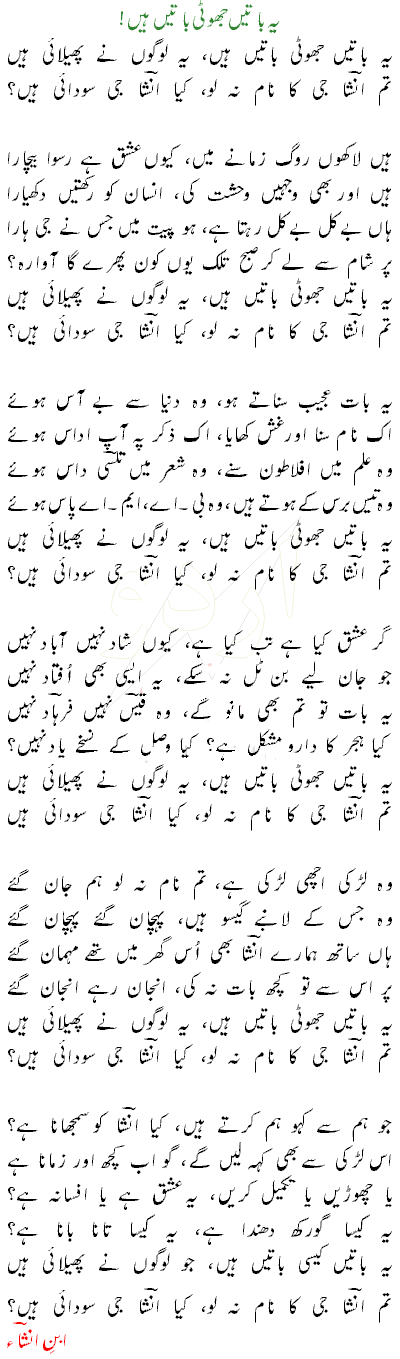 یہ باتیں جھوٹی باتیں ہیں!
یہ باتیں جھوٹی باتیں ہیں، یہ لوگوں نے پھیلائی ہیں
تم انشؔا جی کا نام نہ لو، کیا انشؔا جی سودائی ہیں؟
ہیں لاکھوں روگ زمانے میں، کیوں عشق ہے رسوا بیچارا
ہیں اور بھی وجہیں وحشت کی، انسان کو رکھتیں دکھیارا
ہاں بے کل بے کل رہتا ہے، ہو پیت میں جس نے جی ہارا
پر شام سے لے کر صبح تلک یوں کون پھرے گا آوارہ؟
یہ باتیں جھوٹی باتیں ہیں، یہ لوگوں نے پھیلائی ہیں
تم انشؔا جی کا نام نہ لو، کیا انشؔا جی سودائی ہیں؟
یہ بات عجیب سناتے ہو، وہ دنیا سے بے آس ہوئے
اک نام سنا اور غش کھایا، اک ذکر پہ آپ اداس ہوئے
وہ علم میں افلاطون سنے، وہ شعر میں تلسی داس ہوئے
وہ تیس برس کے ہوتے ہیں، وہ بی۔اے، ایم۔اے پاس ہوئے
یہ باتیں جھوٹی باتیں ہیں، یہ لوگوں نے پھیلائی ہیں
تم انشؔا جی کا نام نہ لو، کیا انشؔا جی سودائی ہیں؟
گر عشق کیا ہے تب کیا ہے، کیوں شاد نہیں آباد نہیں
جو جان لیے بن ٹل نہ سکے، یہ ایسی بھی اُفتاد نہیں
یہ بات تو تم بھی مانو گے، وہ قیسؔ نہیں فرہادؔ نہیں
کیا ہجر کا دارو مشکل ہے؟ کیا وصل کے نسخے یاد نہیں؟
یہ باتیں جھوٹی باتیں ہیں، یہ لوگوں نے پھیلائی ہیں
تم انشؔا جی کا نام نہ لو، کیا انشؔا جی سودائی ہیں؟
وہ لڑکی اچھی لڑکی ہے، تم نام نہ لو ہم جان گئے
وہ جس کے لانبے گیسو ہیں، پہچان گئے پہچان گئے
ہاں ساتھ ہمارے انشؔا بھی اُس گھر میں تھے مہمان گئے
پر اس سے تو کچھ بات نہ کی، انجان رہے انجان گئے
یہ باتیں جھوٹی باتیں ہیں، یہ لوگوں نے پھیلائی ہیں
تم انشؔا جی کا نام نہ لو، کیا انشؔا جی سودائی ہیں؟
جو ہم سے کہو ہم کرتے ہیں، کیا انشؔا کو سمجھانا ہے؟
اس لڑکی سے بھی کہہ لیں گے، گو اب کچھ اور زمانا ہے
یا چھوڑیں یا تکمیل کریں، یہ عشق ہے یا افسانہ ہے؟
یہ کیسا گورکھ دھندا ہے، یہ کیسا تانا بانا ہے؟
یہ باتیں کیسی باتیں ہیں، جو لوگوں نے پھیلائی ہیں
تم انشؔا جی کا نام نہ لو، کیا انشؔا جی سودائی ہیں؟
ابنِ انشؔاء